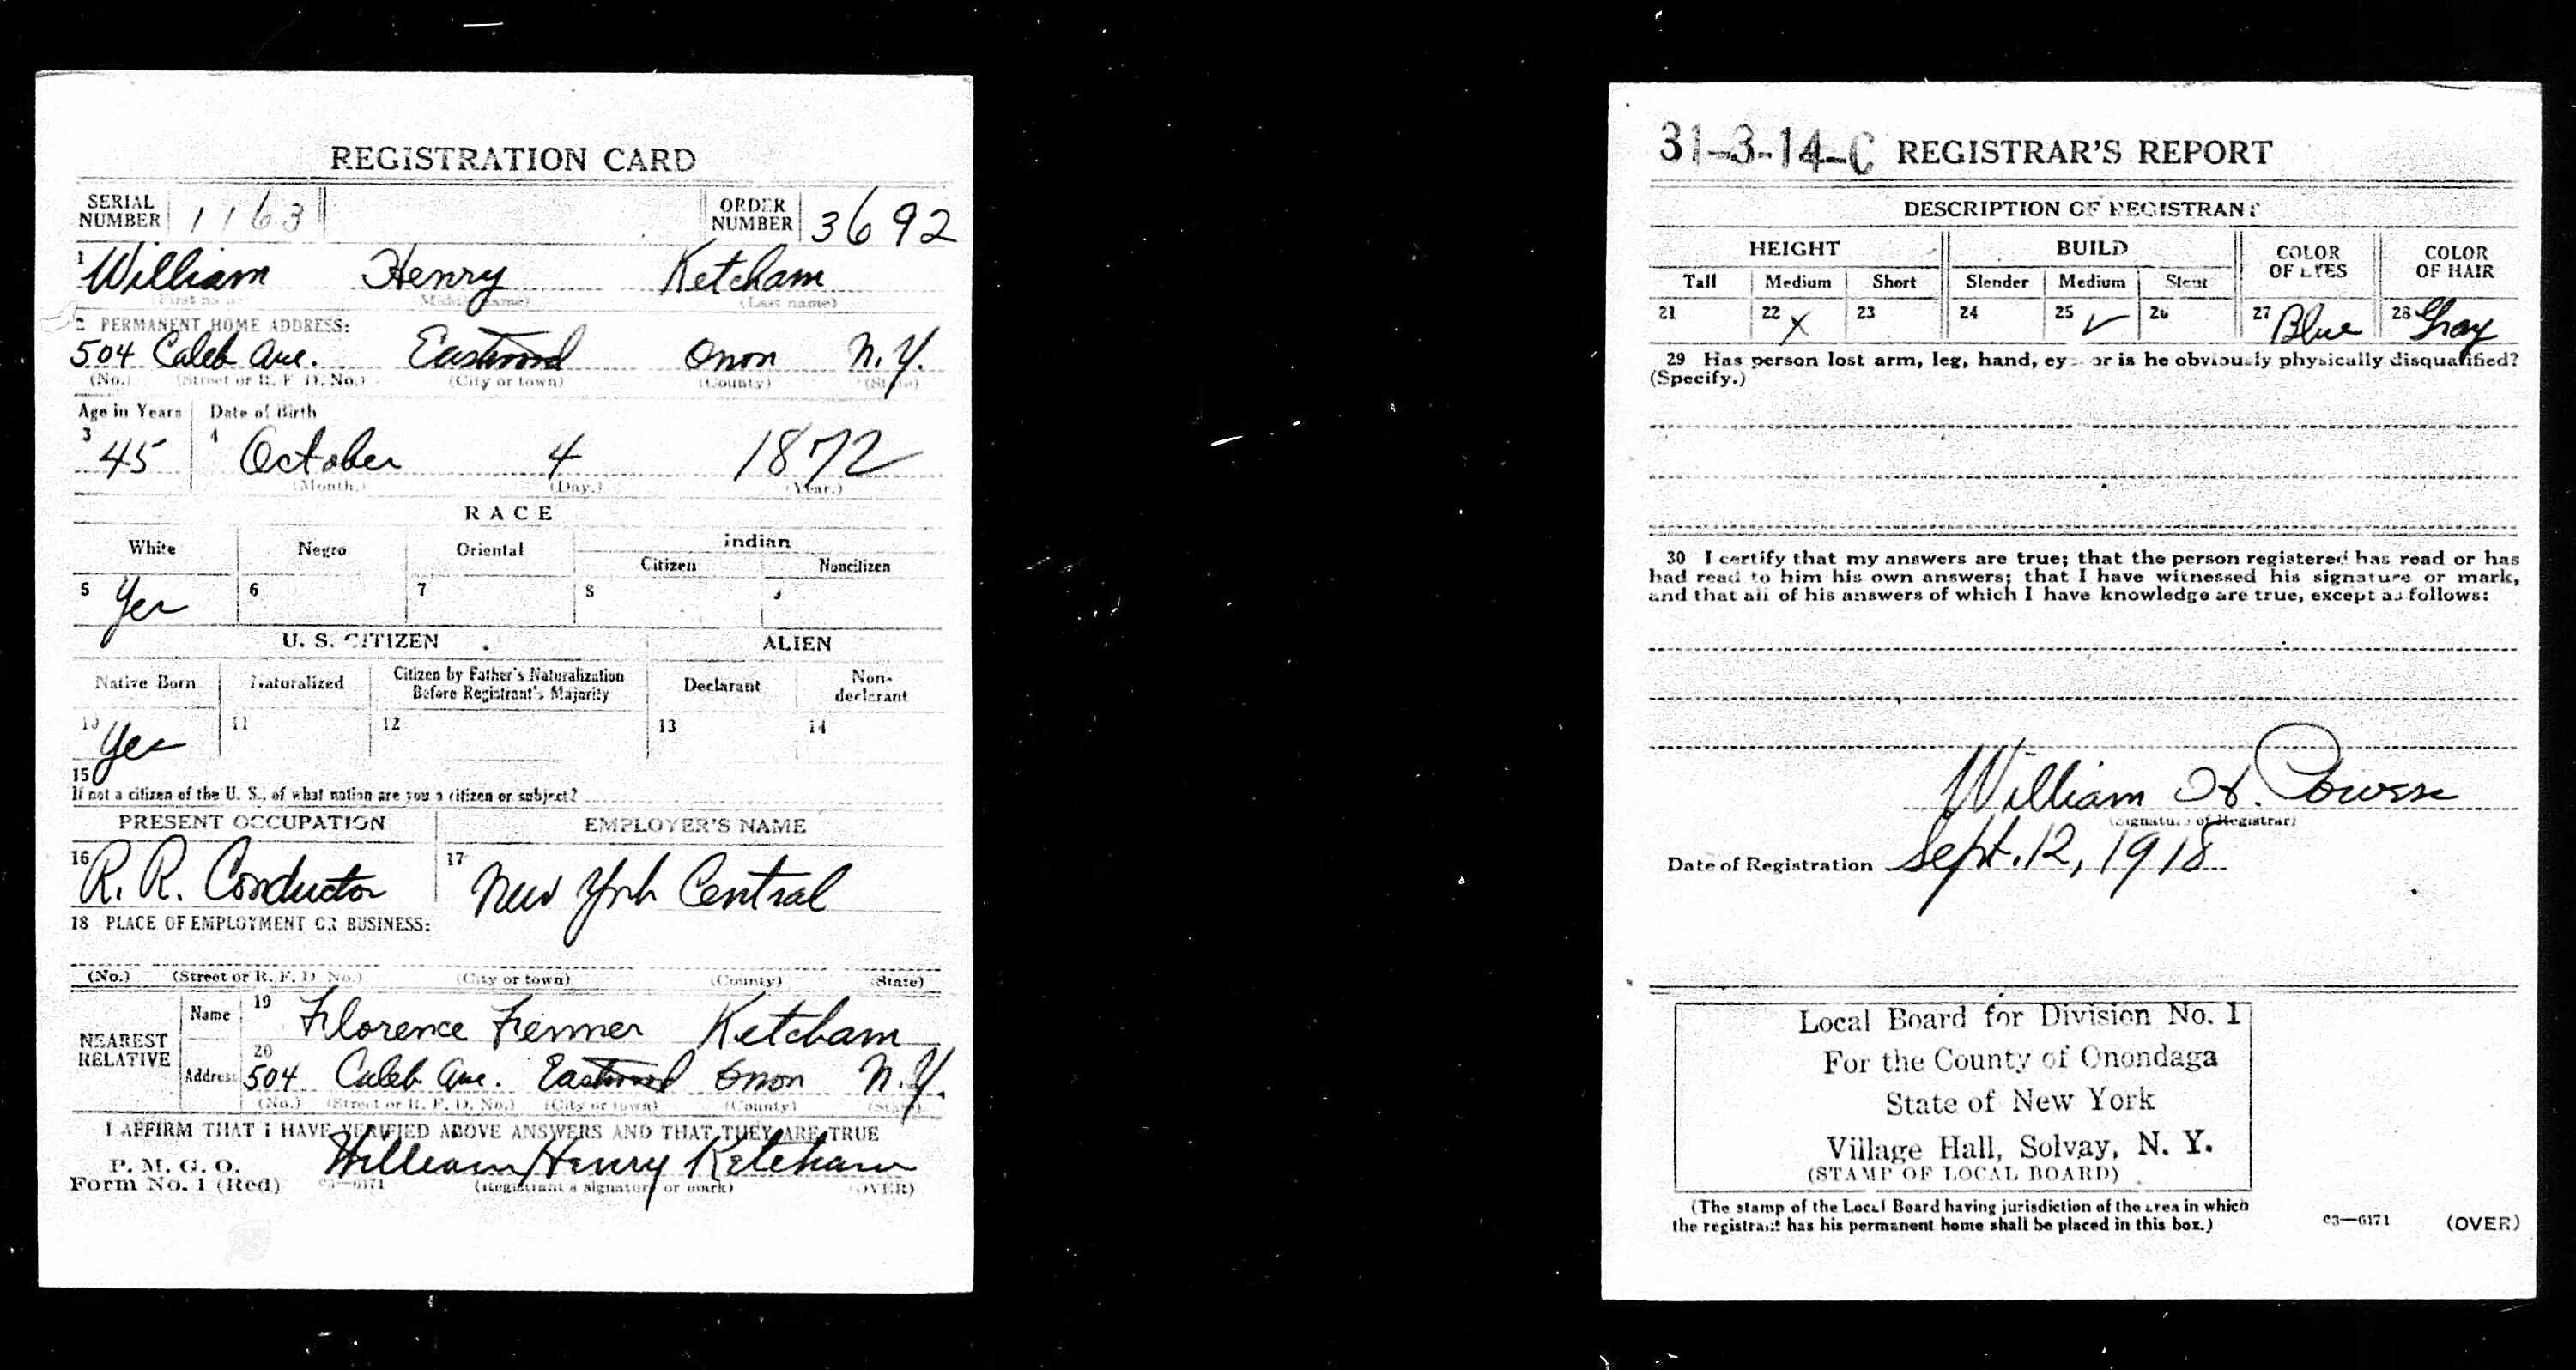 REGISTRATION CARD
SERIAL NUMBER 1163 ORDER NUMBER 3692
1 William Henry Ketcham
(First name) (Middle name) (Last name)
2 PERMANENT HOME ADDRESS:
504 Caleb Ave. Eastwood Onon N.Y.
(No.) (Street or R. F. D. No.) (City or town) (County) (State)
Age in Years Date of Birth
3 45 4 October 4 1872
(Month.) (Day.) (Year.)
RACE
White Negro Oriental Indian
Citizen Noncitizen
5 Yes 6 7 8 9
U. S. CITIZEN ALIEN
Native Born Naturalized Citizen by Father's Naturalization Before Registrant's Majority Declarant Non-declarant
10 Yes 11 12 13 14
15
If not a citizen of the U. S., of what nation are you a citizen or subject?
PRESENT OCCUPATION EMPLOYER'S NAME
16 R. R. Conductor 17 New York Central
18 PLACE OF EMPLOYMENT OR BUSINESS:
(No.) (Street or R. F. D. No.) (City or town) (County) (State)
NEAREST RELATIVE
Name 19 Florence Fenner Ketcham
Address 20 504 Caleb Ave. Eastwood Onon N.Y.
(No.) (Street or R. F. D. No.) (City or town) (County) (State)
I AFFIRM THAT I HAVE VERIFIED ABOVE ANSWERS AND THAT THEY ARE TRUE
P. M. G. O.
Form No. 1 (Red) c3—6171 William Henry Ketcham
(Registrant's signature or mark) (OVER)
31-3-14-C REGISTRAR'S REPORT
DESCRIPTION OF REGISTRANT
HEIGHT BUILD COLOR OF EYES COLOR OF HAIR
Tall Medium Short Slender Medium Stout
21 22 X 23 24 25 ✓ 26 27 Blue 28 Gray
29 Has person lost arm, leg, hand, eye, or is he obviously physically disqualified?
(Specify.)
30 I certify that my answers are true; that the person registered has read or has
had read to him his own answers; that I have witnessed his signature or mark,
and that all of his answers of which I have knowledge are true, except as follows:
William H. Powers
(Signature of Registrar)
Date of Registration Sept. 12, 1918
Local Board for Division No. 1
For the County of Onondaga
State of New York
Village Hall, Solvay, N. Y.
(STAMP OF LOCAL BOARD)
(The stamp of the Local Board having jurisdiction of the area in which
the registrant has his permanent home shall be placed in this box.)
c3—6171 (OVER)